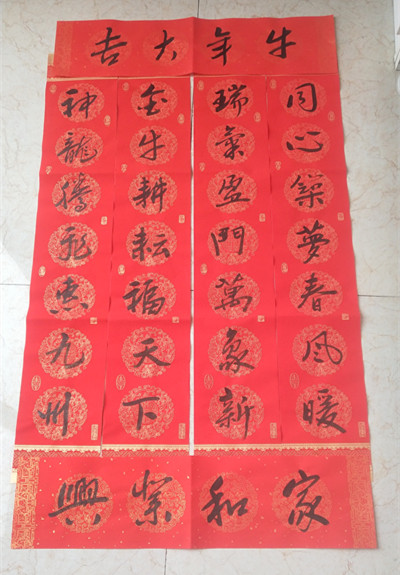 牛年大吉
同心築夢春风暖
瑞氣盈門萬象新
金牛耕耘福天下
神龍騰飛惠九州
家和業興